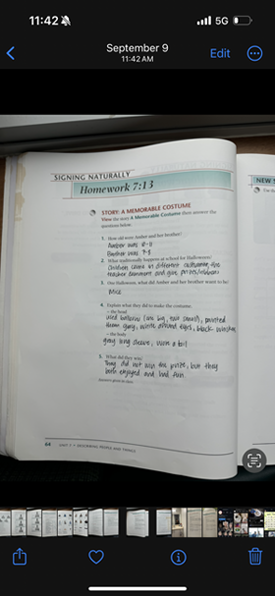 11:42
5G
September 9
11:42 AM
Edit
SIGNING NATURALLY
NEW
Homework 7:13
STORY: A MEMORABLE COSTUME
View the story A Memorable Costume then answer the
questions below.
1. How old were Amber and her brother?
Amber was
Brother was 7-8
2. What traditionally happens at school for Halloween?
Children in different costumes, the
teacher and give
3. One Halloween, what did Amber and her brother want to be?
Mice
4. Explain what they did to make the costume.
– the head
used balloons (one big, two small), painted
them gray, white around eyes, black whisker
– the body
gray long
5. What did they win?
They did not win the prize, but they
both enjoyed and had fun
64
UNIT 7 • DESCRIBING PEOPLE AND THINGS